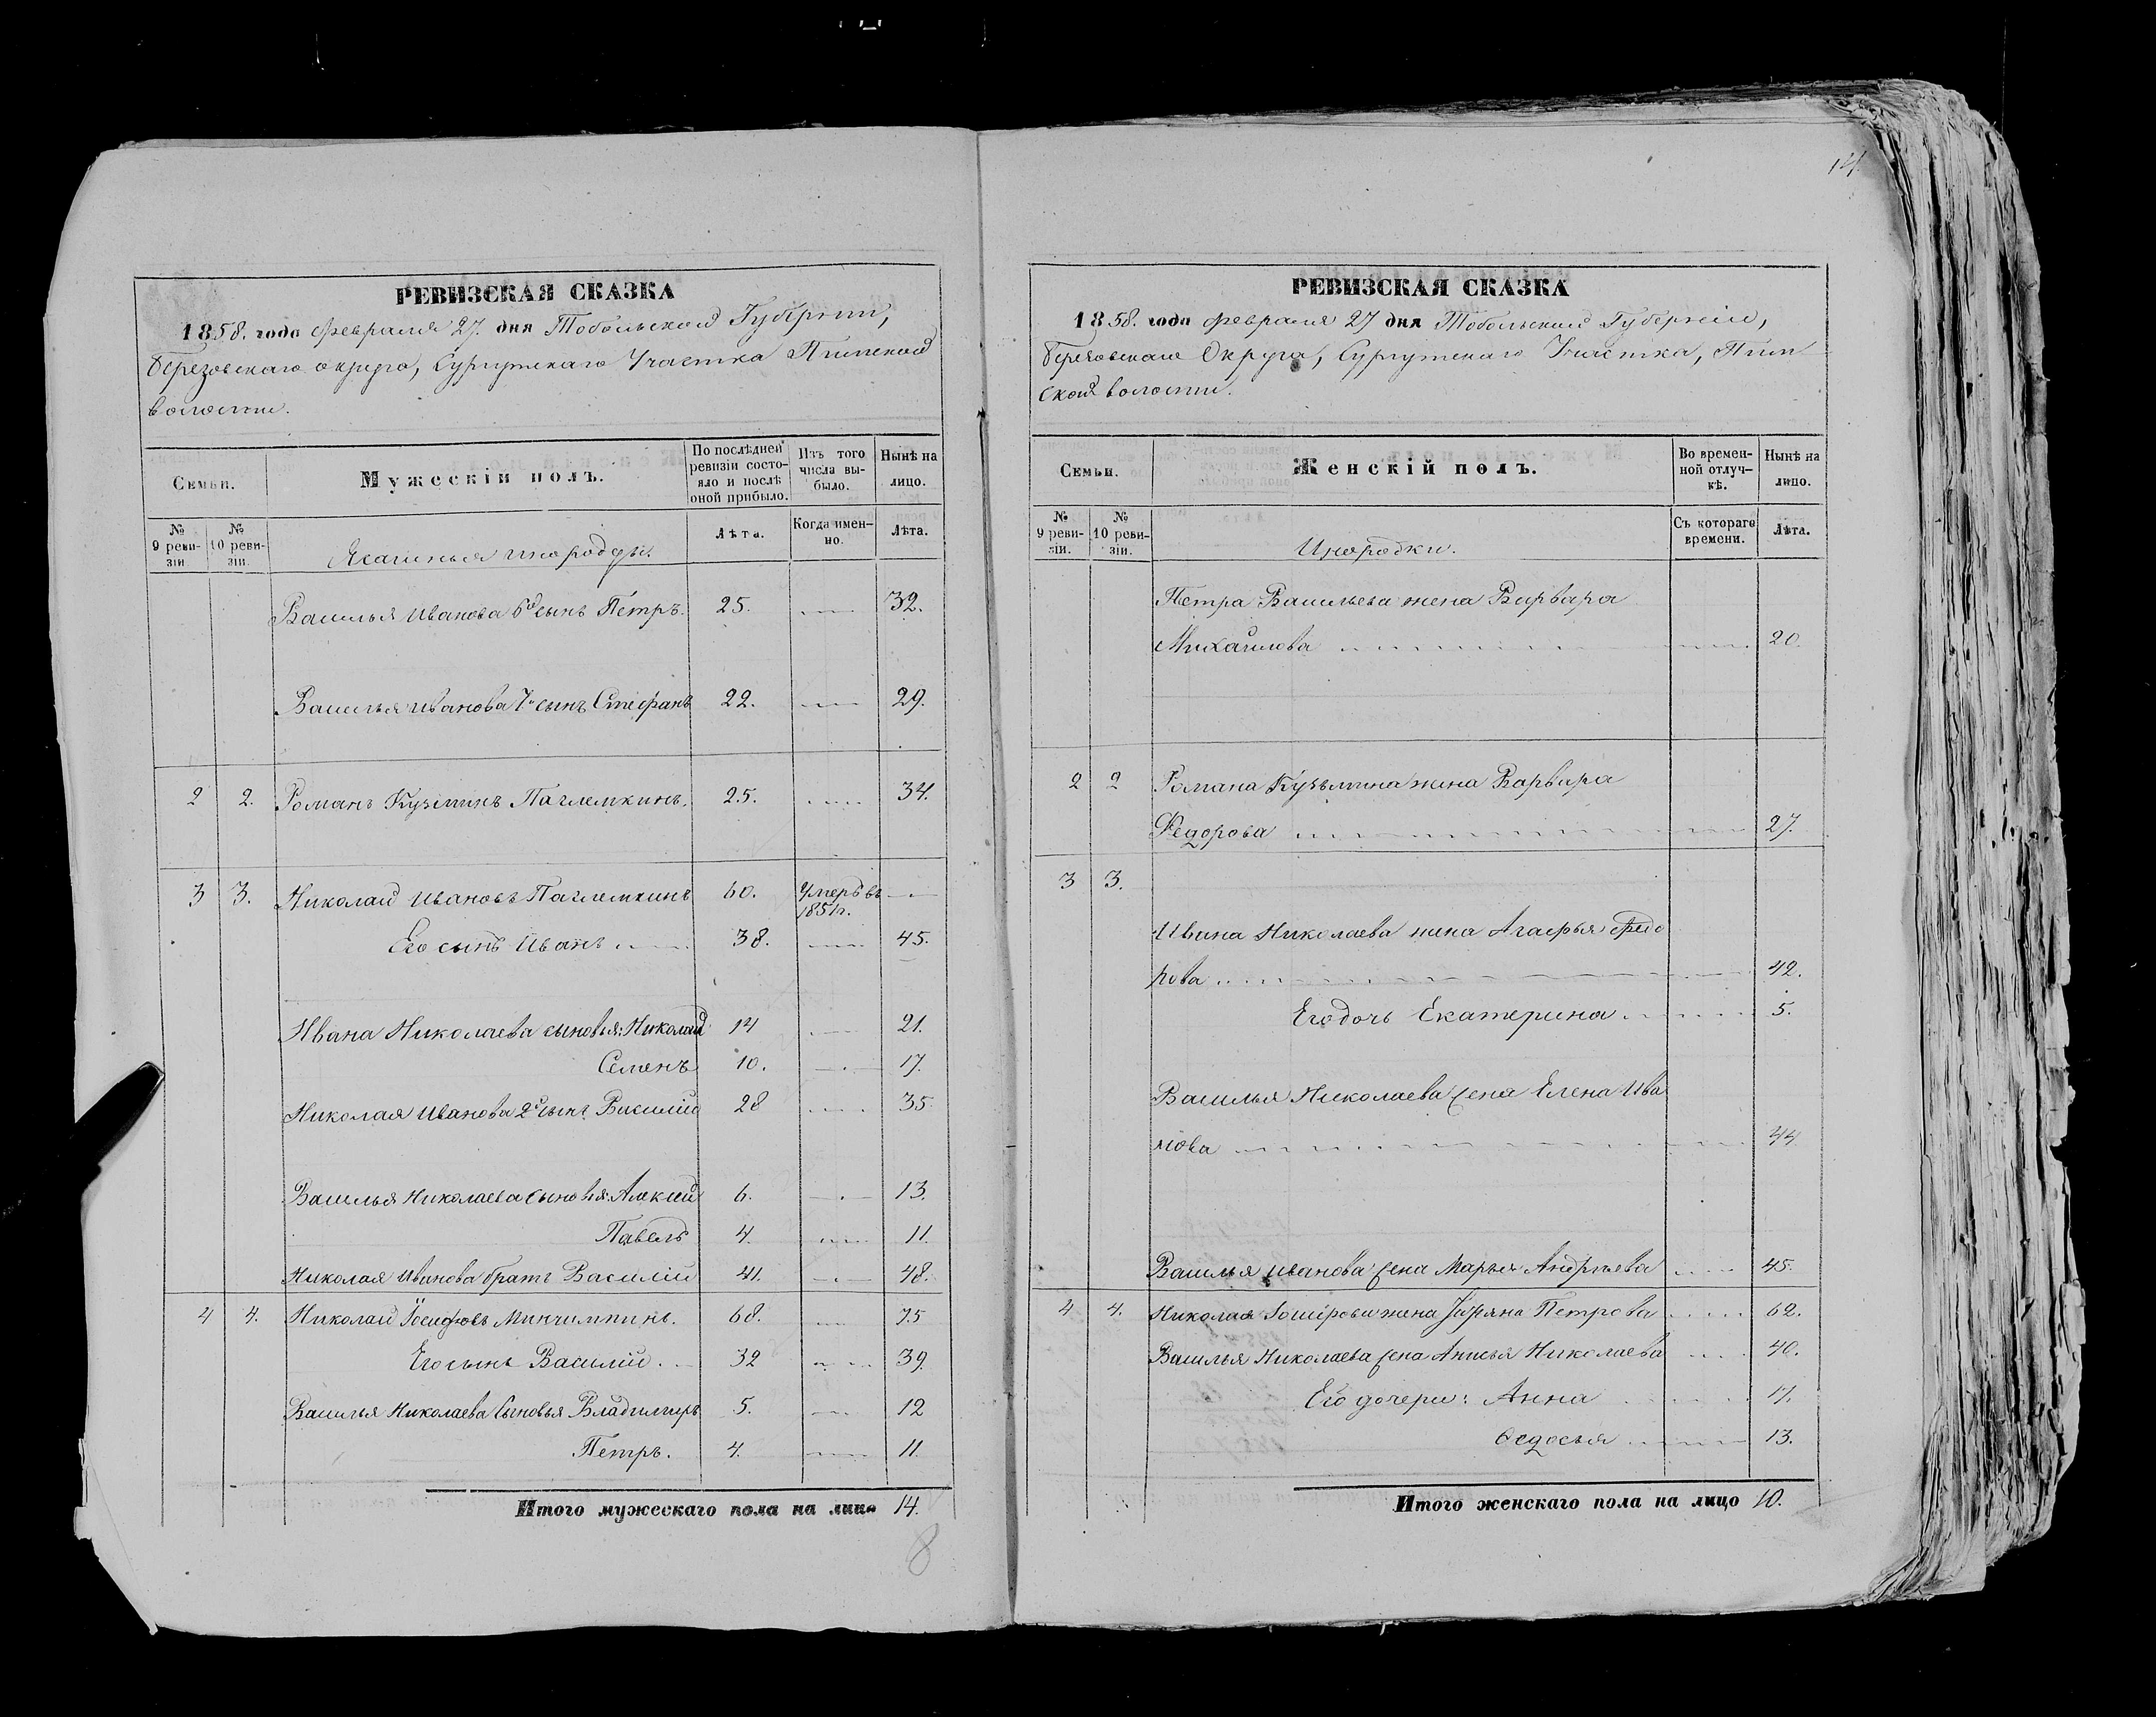 РЕВИЗСКАЯ СКАЗКА
1858. года Февраля 27. дня Тобольской Губерніи,
Березовскаго округа, Сургутскаго Участка Пимской
волости.
Семьи.
Мужескій полъ.
По послѣдней ревизіи состояло и послѣ оной прибыло.
Изъ того числа выбыло.
Нынѣ на лицо.
№ 9 ревизіи
№ 10 ревизіи.
Ясашныя инородцы.
Лѣта.
Когда именно.
Лѣта.
Василья Иванова 6й сынъ Петръ. 25. 32.
Василья Иванова 7й сынъ Стефанъ 22. 29.
2 2. Романъ Кузминъ 25. 34.
3 3. Николай Ивановъ 60. Умеръ въ
1851г.
Его сынъ Иванъ 38. 45.
Ивана Николаева сыновья: Николай 14 21.
Семенъ 10. 17.
Николая Иванова 2й сынъ Василій 28 35.
Василья Николаева сыновья: Алексѣй 6. 13.
Павелъ 4. 11.
Николая Иванова братъ Василій 41. 48.
4 4. Николай Іосифовъ 68. 75
Его сынъ Василій. 32 39.
Василья Николаева Сыновья Владимиръ 5. 12
Петръ. 4. 11.
Итого мужескаго пола на лицо 14.
8
14.
РЕВИЗСКАЯ СКАЗКА
1858. года Февраля 27 дня Тобольской Губерніи,
Березовскаго Округа, Сургутскаго Участка, Пим
ской волости.
Семьи.
Женскій полъ.
Во временной отлучкѣ.
Нынѣ на лицо.
№ 9 ревизіи.
№ 10 ревизіи.
Инородки.
Съ котораго времени.
Лѣта.
Петра Васильева жена Варвара
Михайлова 20.
2 2 Романа Кузьмина жена Варвара
Федорова 27.
3 3.
Ивана Николаева жена Агафья Федо
рова 42.
Его дочь Екатерина 5.
Василья Николаева жена Елена Ива
нова 44
Василья Иванова жена Марья Андрѣева 45.
4 4. Николая жена Татьяна Петрова 62.
Василья Николаева жена Анисья Николаева 40.
Его дочери: Анна 17.
Федосья 13.
Итого женскаго пола на лицо 10.